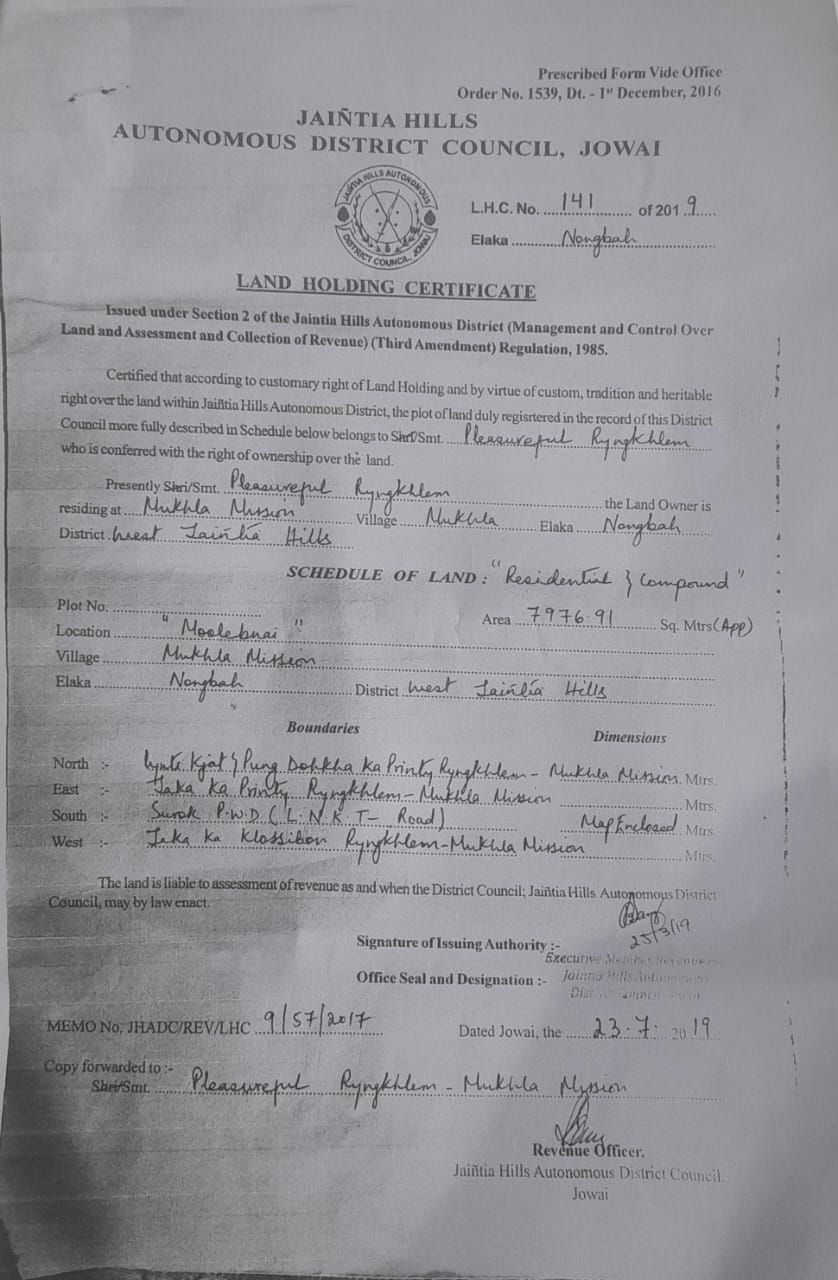 Prescribed Form Vide Office
Order No. 1539, Dt. - 1st December, 2016
JAIÑTIA HILLS
AUTONOMOUS DISTRICT COUNCIL, JOWAI
JAIÑTIA HILLS AUTONOMOUS
DISTRICT COUNCIL, JOWAI
L.H.C. No. 141 of 2019
Elaka Nongbah
LAND HOLDING CERTIFICATE
Issued under Section 2 of the Jaintia Hills Autonomous District (Management and Control Over
Land and Assessment and Collection of Revenue) (Third Amendment) Regulation, 1985.
Certified that according to customary right of Land Holding and by virtue of custom, tradition and heritable
right over the land within Jaiñtia Hills Autonomous District, the plot of land duly regisrtered in the record of this District
Council more fully described in Schedule below belongs to Shri/Smt. Pleasureful Ryngkhlem
who is conferred with the right of ownership over the land.
Presently Shri/Smt. Pleasureful Ryngkhlem the Land Owner is
residing at Mukhla Mission Village Mukhla Elaka Nongbah
District West Jaiñtia Hills
SCHEDULE OF LAND : "Residential & Compound"
Plot No. Area 7976.91 Sq. Mtrs (App)
Location "Moolebnai"
Village Mukhla Mission
Elaka Nongbah District West Jaiñtia Hills
Boundaries Dimensions
North :- Kjat & Pung Dohkha Ka Printy Ryngkhlem - Mukhla Mission Mtrs.
East :- Jaka Ka Printy Ryngkhlem - Mukhla Mission Mtrs.
South :- Surok P.W.D (L.N.K.T - Road) Map Enclosed Mtrs.
West :- Jaka Ka Klossibon Ryngkhlem - Mukhla Mission Mtrs.
The land is liable to assessment of revenue as and when the District Council; Jaiñtia Hills Autonomous District
Council, may by law enact.
25/3/19
Signature of Issuing Authority :-
Executive Member Revenue
Office Seal and Designation :- Jaintia Hills Autonomous
District Council Jowai
MEMO No. JHADC/REV/LHC 9/57/2017 Dated Jowai, the 23.7.2019
Copy forwarded to :-
Shri/Smt. Pleasureful Ryngkhlem - Mukhla Myssion
Revenue Officer,
Jaiñtia Hills Autonomous District Council,
Jowai